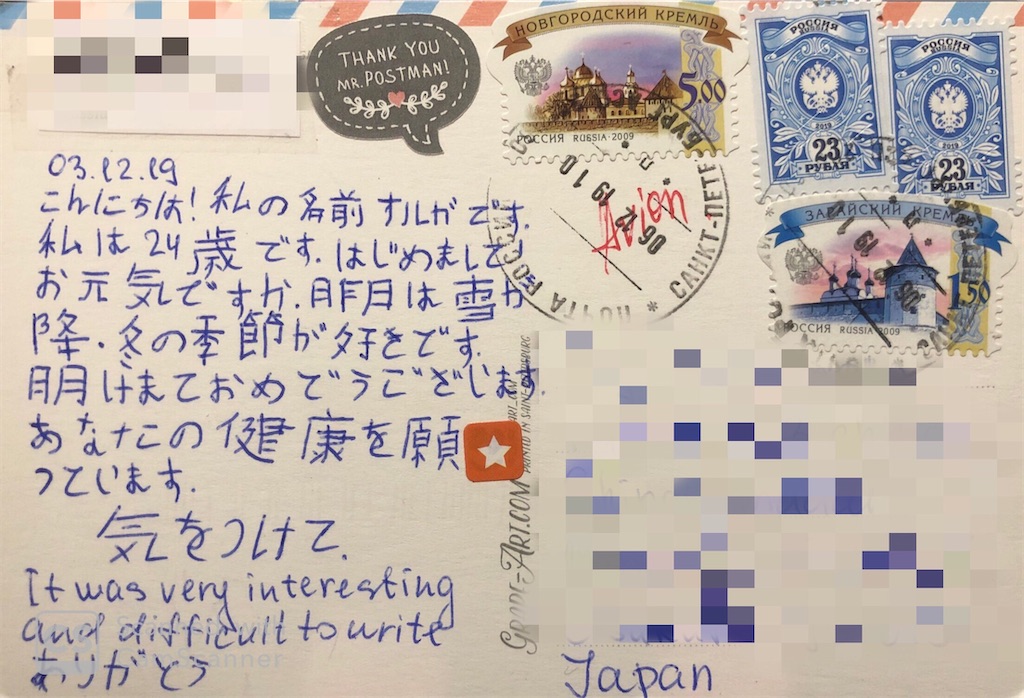 THANK YOU
MR. POSTMAN!
НОВГОРОДСКИЙ КРЕМЛЬ
5.00
РОССИЯ RUSSIA·2009
РОССИЯ
RUSSIA
2019
23
РУБЛЯ
РОССИЯ
RUSSIA
2019
23
РУБЛЯ
ЗАРАЙСКИЙ КРЕМЛЬ
1.50
РОССИЯ RUSSIA·2009
Avion
ПОЧТА РОССИИ
* САНКТ-ПЕТЕРБУРГ
06 12 19 10
03.12.19
こんにちは! 私の名前 オルガです.
私は 24歳です. はじめまして
お元気ですか. 昨日は雪が
降. 冬の季節が好きです.
明けまておめでうございます.
あなたの健康を願
っています.
気をつけて.
It was very interesting
and difficult to write
ありがとう
GRADE-ART.COM
PRINTED IN SAINT-PETERSBURG
Japan
CamScanner